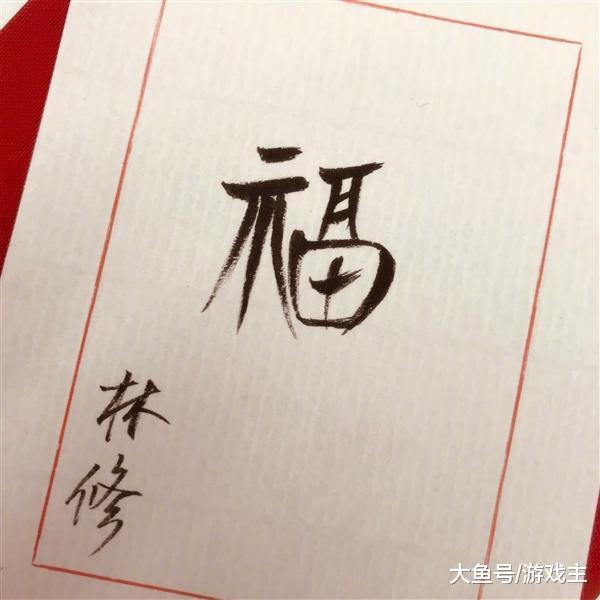 福
林
修
大鱼号/游戏主